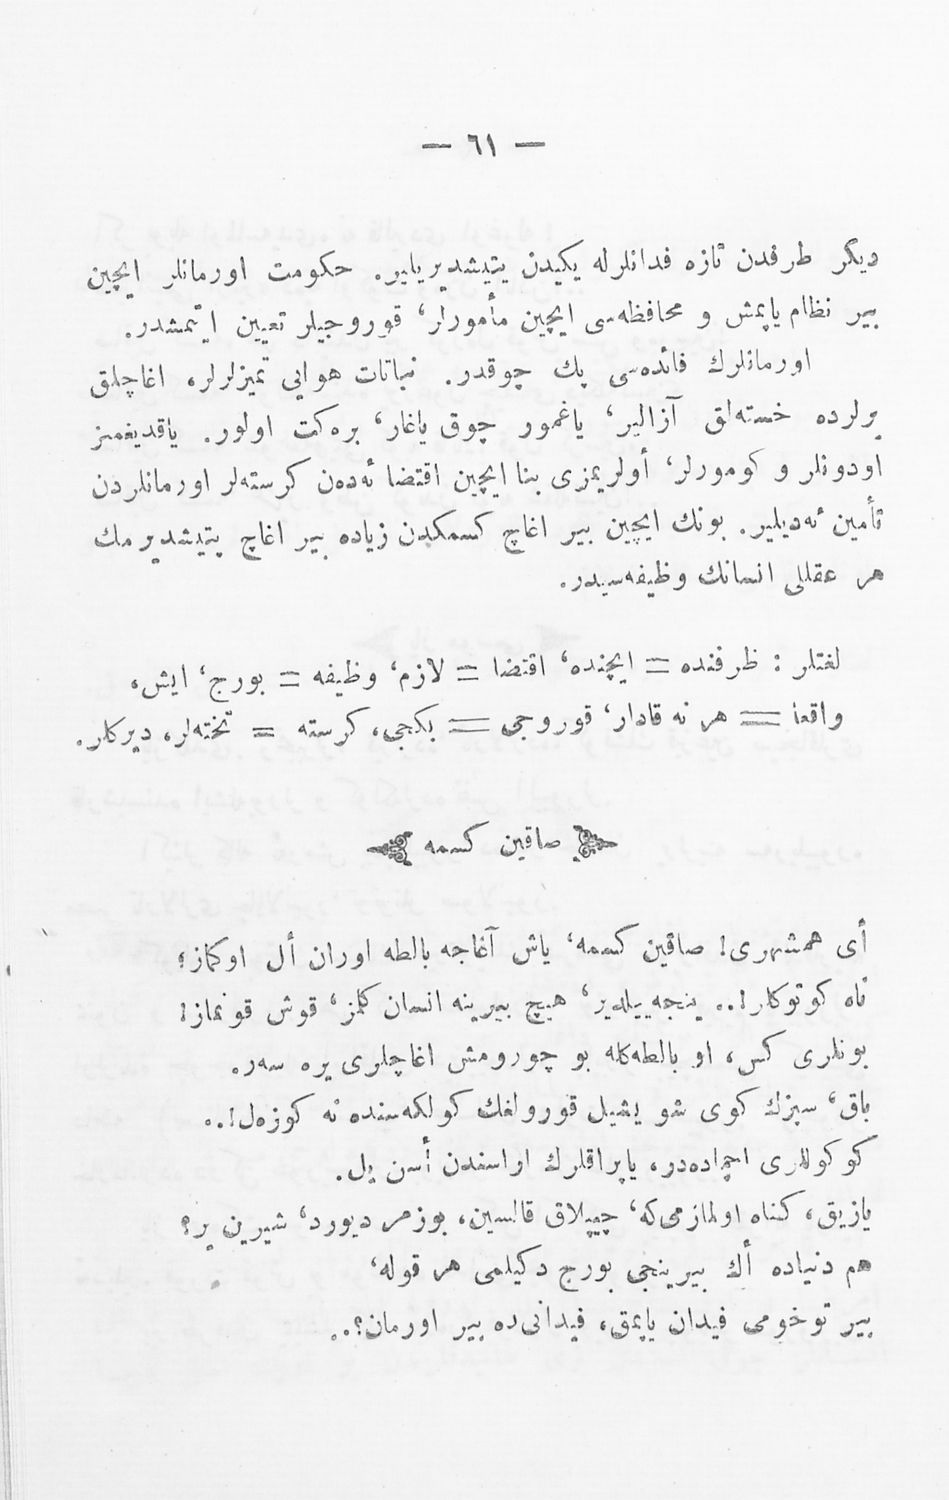 — ٦١ —
ديگر طرفدن تازه فدانلرله يكيدن يتيشديريلير. حكومت اورمانلر ايچين
بير نظام ياپمش و محافظه‌سى ايچين مأمورلر، قوروجيلر تعيين ايتمشدر.
اورمانلرك فائده‌سى پك چوقدر. نباتات هوايي تميزلرلر، اغاچلق
يرلرده خسته‌لق آزالير، ياغمور چوق ياغار، بره‌كت اولور. ياقديغمز
اودونلر و كومورلر، أولريمزى بنا ايچين اقتضا ئه‌ده‌ن كرسته‌لر اورمانلردن
تأمين ئه‌ديلير. بونك ايچين بير اغاچ كسمكدن زياده بير اغاچ يتيشديرمك
هر عقللى انسانك وظيفه‌سيدر.
لغتلر : ظرفنده = ايچنده، اقتضا = لازم، وظيفه = بورج، ايش،
واقعا = هر نه قادار، قوروجى = بكجى، كرسته = تخته‌لر، ديركلر.
صاقين كسمه
أى همشهرى! صاقين كسمه، ياش آغاجه بالطه اوران أل اوكماز؛
ناه كوتوكلر!.. ينجه ييلدير، هيچ بيرينه انسان كلمز، قوش قونماز!
بونلرى كس، او بالطه‌كله بو چورومش اغاچلرى يره سه‌ر.
باق، سيزك كوى شو يشيل قورولغك كولكه‌سنده نه كوزه‌ل!..
كوكوللرى اچماده‌در، ياپراقلرك اراسندن أسن يل.
يازيق، كناه اولمازمى‌كه، چيپلاق قالسين، بوزمر ديورد، شيرين ير؟
هم دنياده أك بيرينجى بورج دكيلمى هر قوله،
بير توخومى فيدان ياپمق، فيدانى‌ده بير اورمان؟..